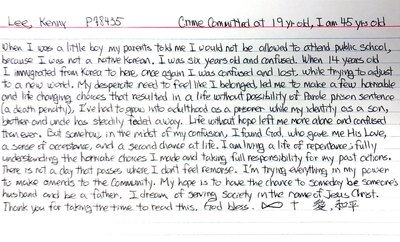 Lee, Kenny P98435 Crime Committed at 19 yr old, I am 45 yrs old
When I was a little boy my parents told me I would not be allowed to attend public school,
because I was not a native Korean. I was six years old and confused. When 14 years old
I immigrated from Korea to here, once again I was confused and lost, while trying to adjust
to a new word. My desperate need to feel like I belonged, led me to make a few horrible
and life changing choices that resulted in a life without possibility of Parole prison sentence
(a death penalty), I've had to grow into adulthood as a prisoner while my identity as a son,
brother and uncle has steadily faded away. Life without hope left me more alone and confused
than ever. But somehow, in the midst of my confusion, I found God, who gave me His Love,
a sense of acceptance, and a second chance at life. I am living a life of repentance; fully
understanding the horrible choices I made and taking full responsibility for my past actions.
There is not a day that passes where I don't feel remorse. I'm trying everything in my power
to make amends to the Community. My hope is to have the chance to someday be someone's
husband and be a father. I dream of serving society in the name of Jesus Christ.
Thank you for taking the time to read this. God bless. 愛, 和平